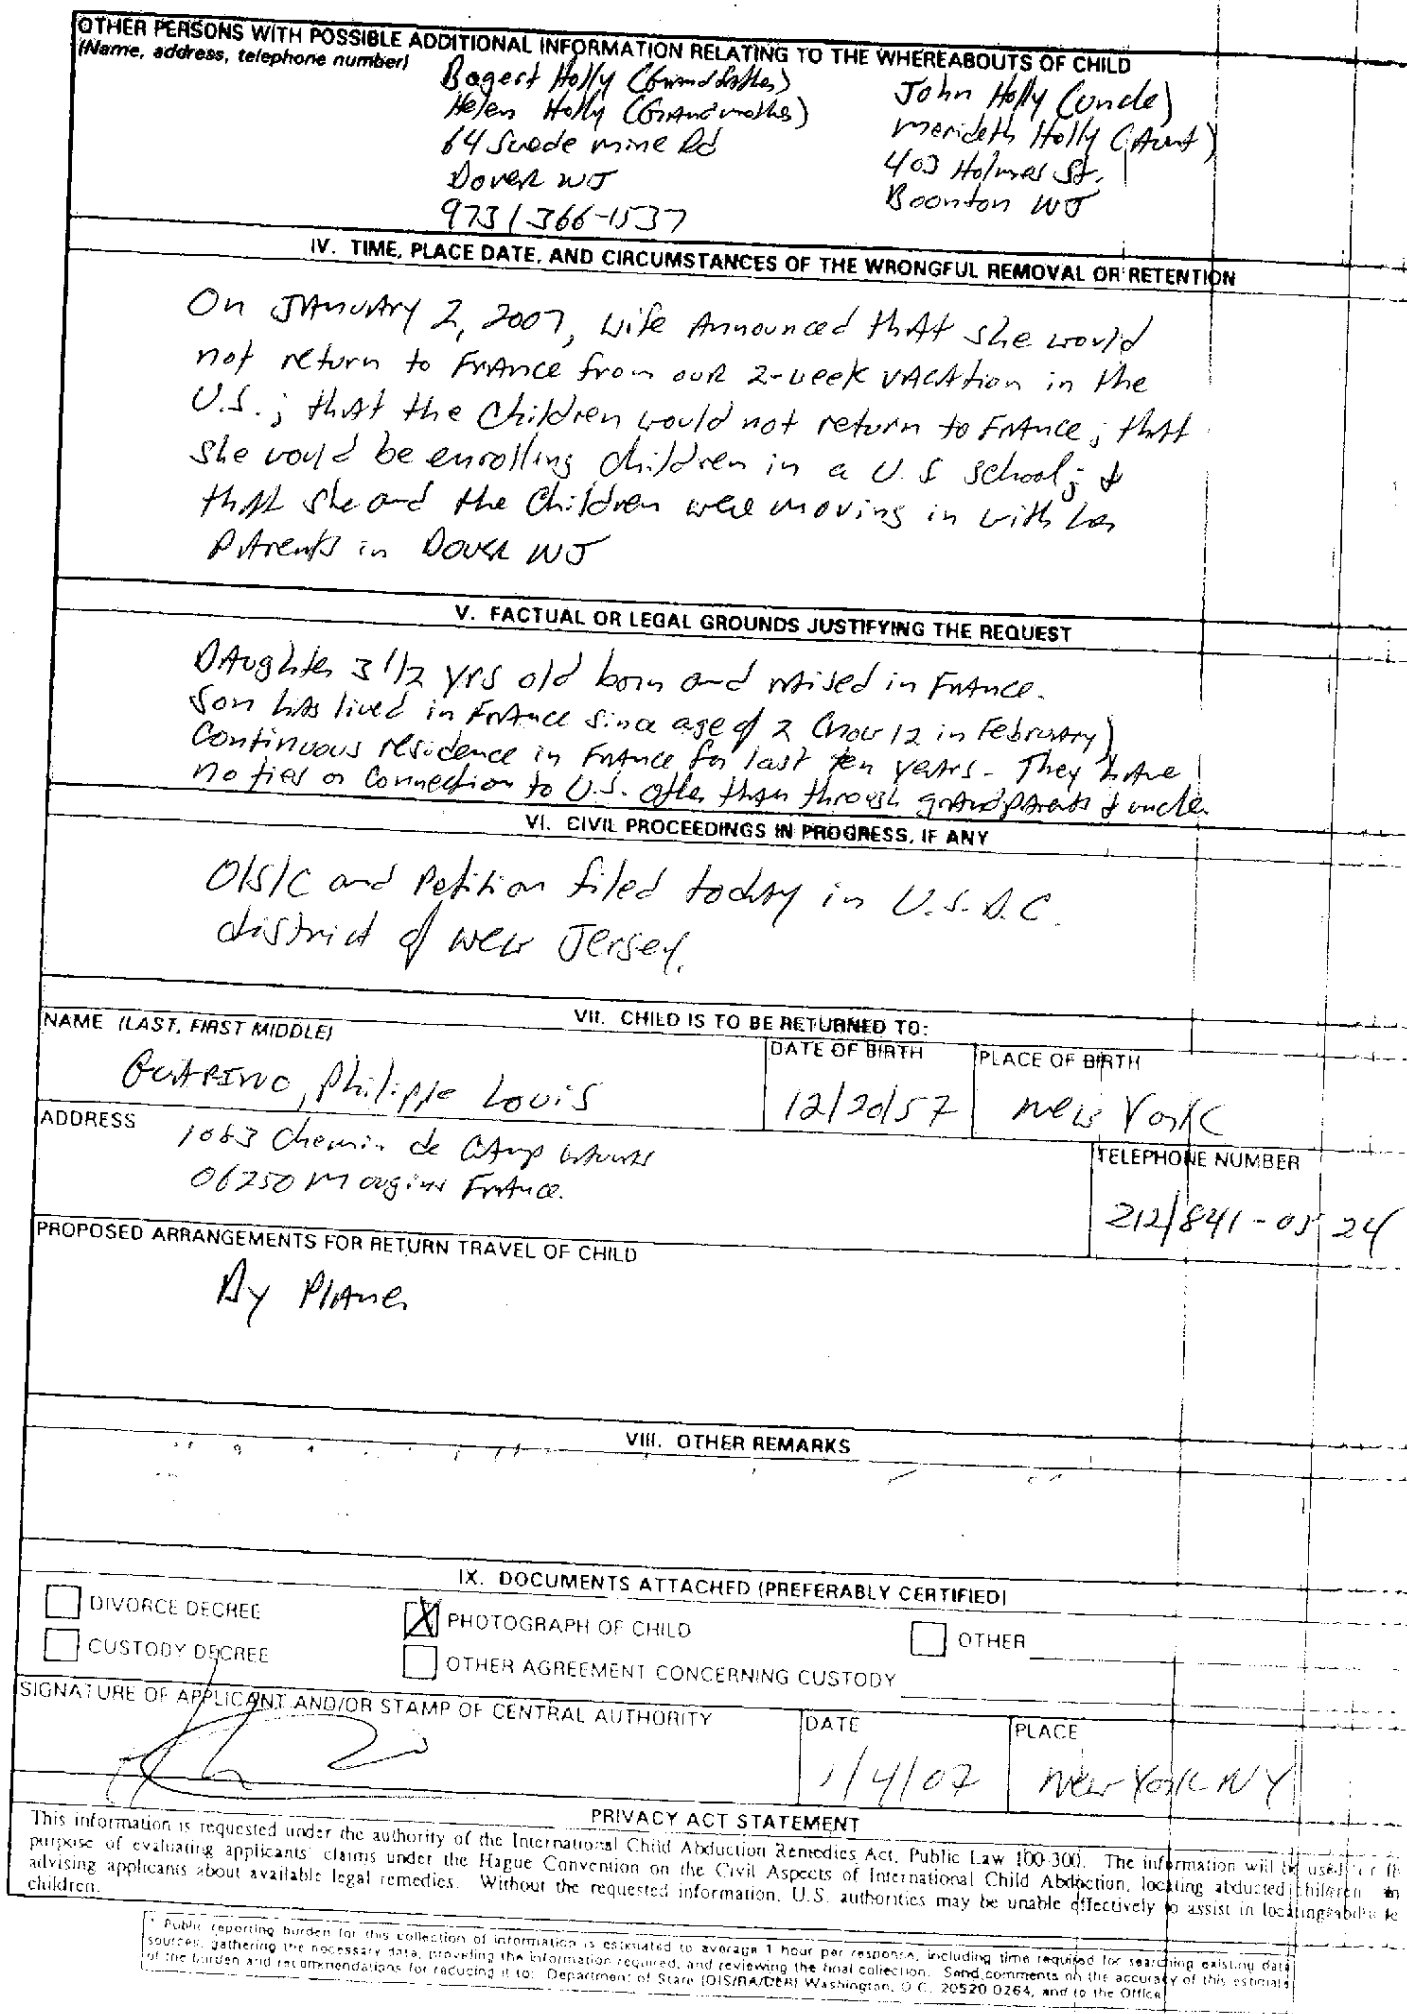 OTHER PERSONS WITH POSSIBLE ADDITIONAL INFORMATION RELATING TO THE WHEREABOUTS OF CHILD
(Name, address, telephone number)
Bogert Holly (Grandfather)
Helen Holly (Grandmother)
64 Suede mine Rd
Dover NJ
973/366-1537
John Holly (uncle)
Merideth Holly (Aunt)
403 Holmes St.
Boonton NJ
IV. TIME, PLACE DATE, AND CIRCUMSTANCES OF THE WRONGFUL REMOVAL OR RETENTION
On JAnuARy 2, 2007, wife Announced thAt she would
not return to FrAnce from our 2-week vAcAtion in the
U.S.; thAt the Children would not return to FrAnce; thAt
she would be enrolling children in a U.S school; &
thAt she and the Children were moving in with her
PArents in Dover NJ
V. FACTUAL OR LEGAL GROUNDS JUSTIFYING THE REQUEST
DAughter 3 1/2 yrs old born and rAised in FrAnce.
Son hAs lived in FrAnce since age of 2 (now 12 in February)
Continuous residence in FrAnce for last ten years - They hAve
no ties or Connection to U.S. other than through grAndpArents & uncle.
VI. CIVIL PROCEEDINGS IN PROGRESS, IF ANY
O/S/C and Petition filed todAy in U.S.D.C.
district of New Jersey.
VII. CHILD IS TO BE RETURNED TO:
NAME (LAST, FIRST MIDDLE)
GUARINO, Philippe Louis
DATE OF BIRTH
12/20/57
PLACE OF BIRTH
New York
ADDRESS
1063 Chemin de CAmp
06250 Mougins FrAnce.
TELEPHONE NUMBER
212/841-0524
PROPOSED ARRANGEMENTS FOR RETURN TRAVEL OF CHILD
By PlAne
VIII. OTHER REMARKS
IX. DOCUMENTS ATTACHED (PREFERABLY CERTIFIED)
DIVORCE DECREE
X PHOTOGRAPH OF CHILD
OTHER
CUSTODY DECREE
OTHER AGREEMENT CONCERNING CUSTODY
SIGNATURE OF APPLICANT AND/OR STAMP OF CENTRAL AUTHORITY
DATE
1/4/07
PLACE
New York NY
PRIVACY ACT STATEMENT
This information is requested under the authority of the International Child Abduction Remedies Act, Public Law 100-300. The information will be used for
purpose of evaluating applicants' claims under the Hague Convention on the Civil Aspects of International Child Abduction, locating abducted children
advising applicants about available legal remedies. Without the requested information, U.S. authorities may be unable effectively to assist in locating
children.
* Public reporting burden for this collection of information is estimated to average 1 hour per response, including time required for searching existing data
sources, gathering the necessary data, providing the information required, and reviewing the final collection. Send comments on the accuracy of this estimate
of the burden and recommendations for reducing it to: Department of State (OIS/RA/DIR) Washington, D.C. 20520-0264, and to the Office